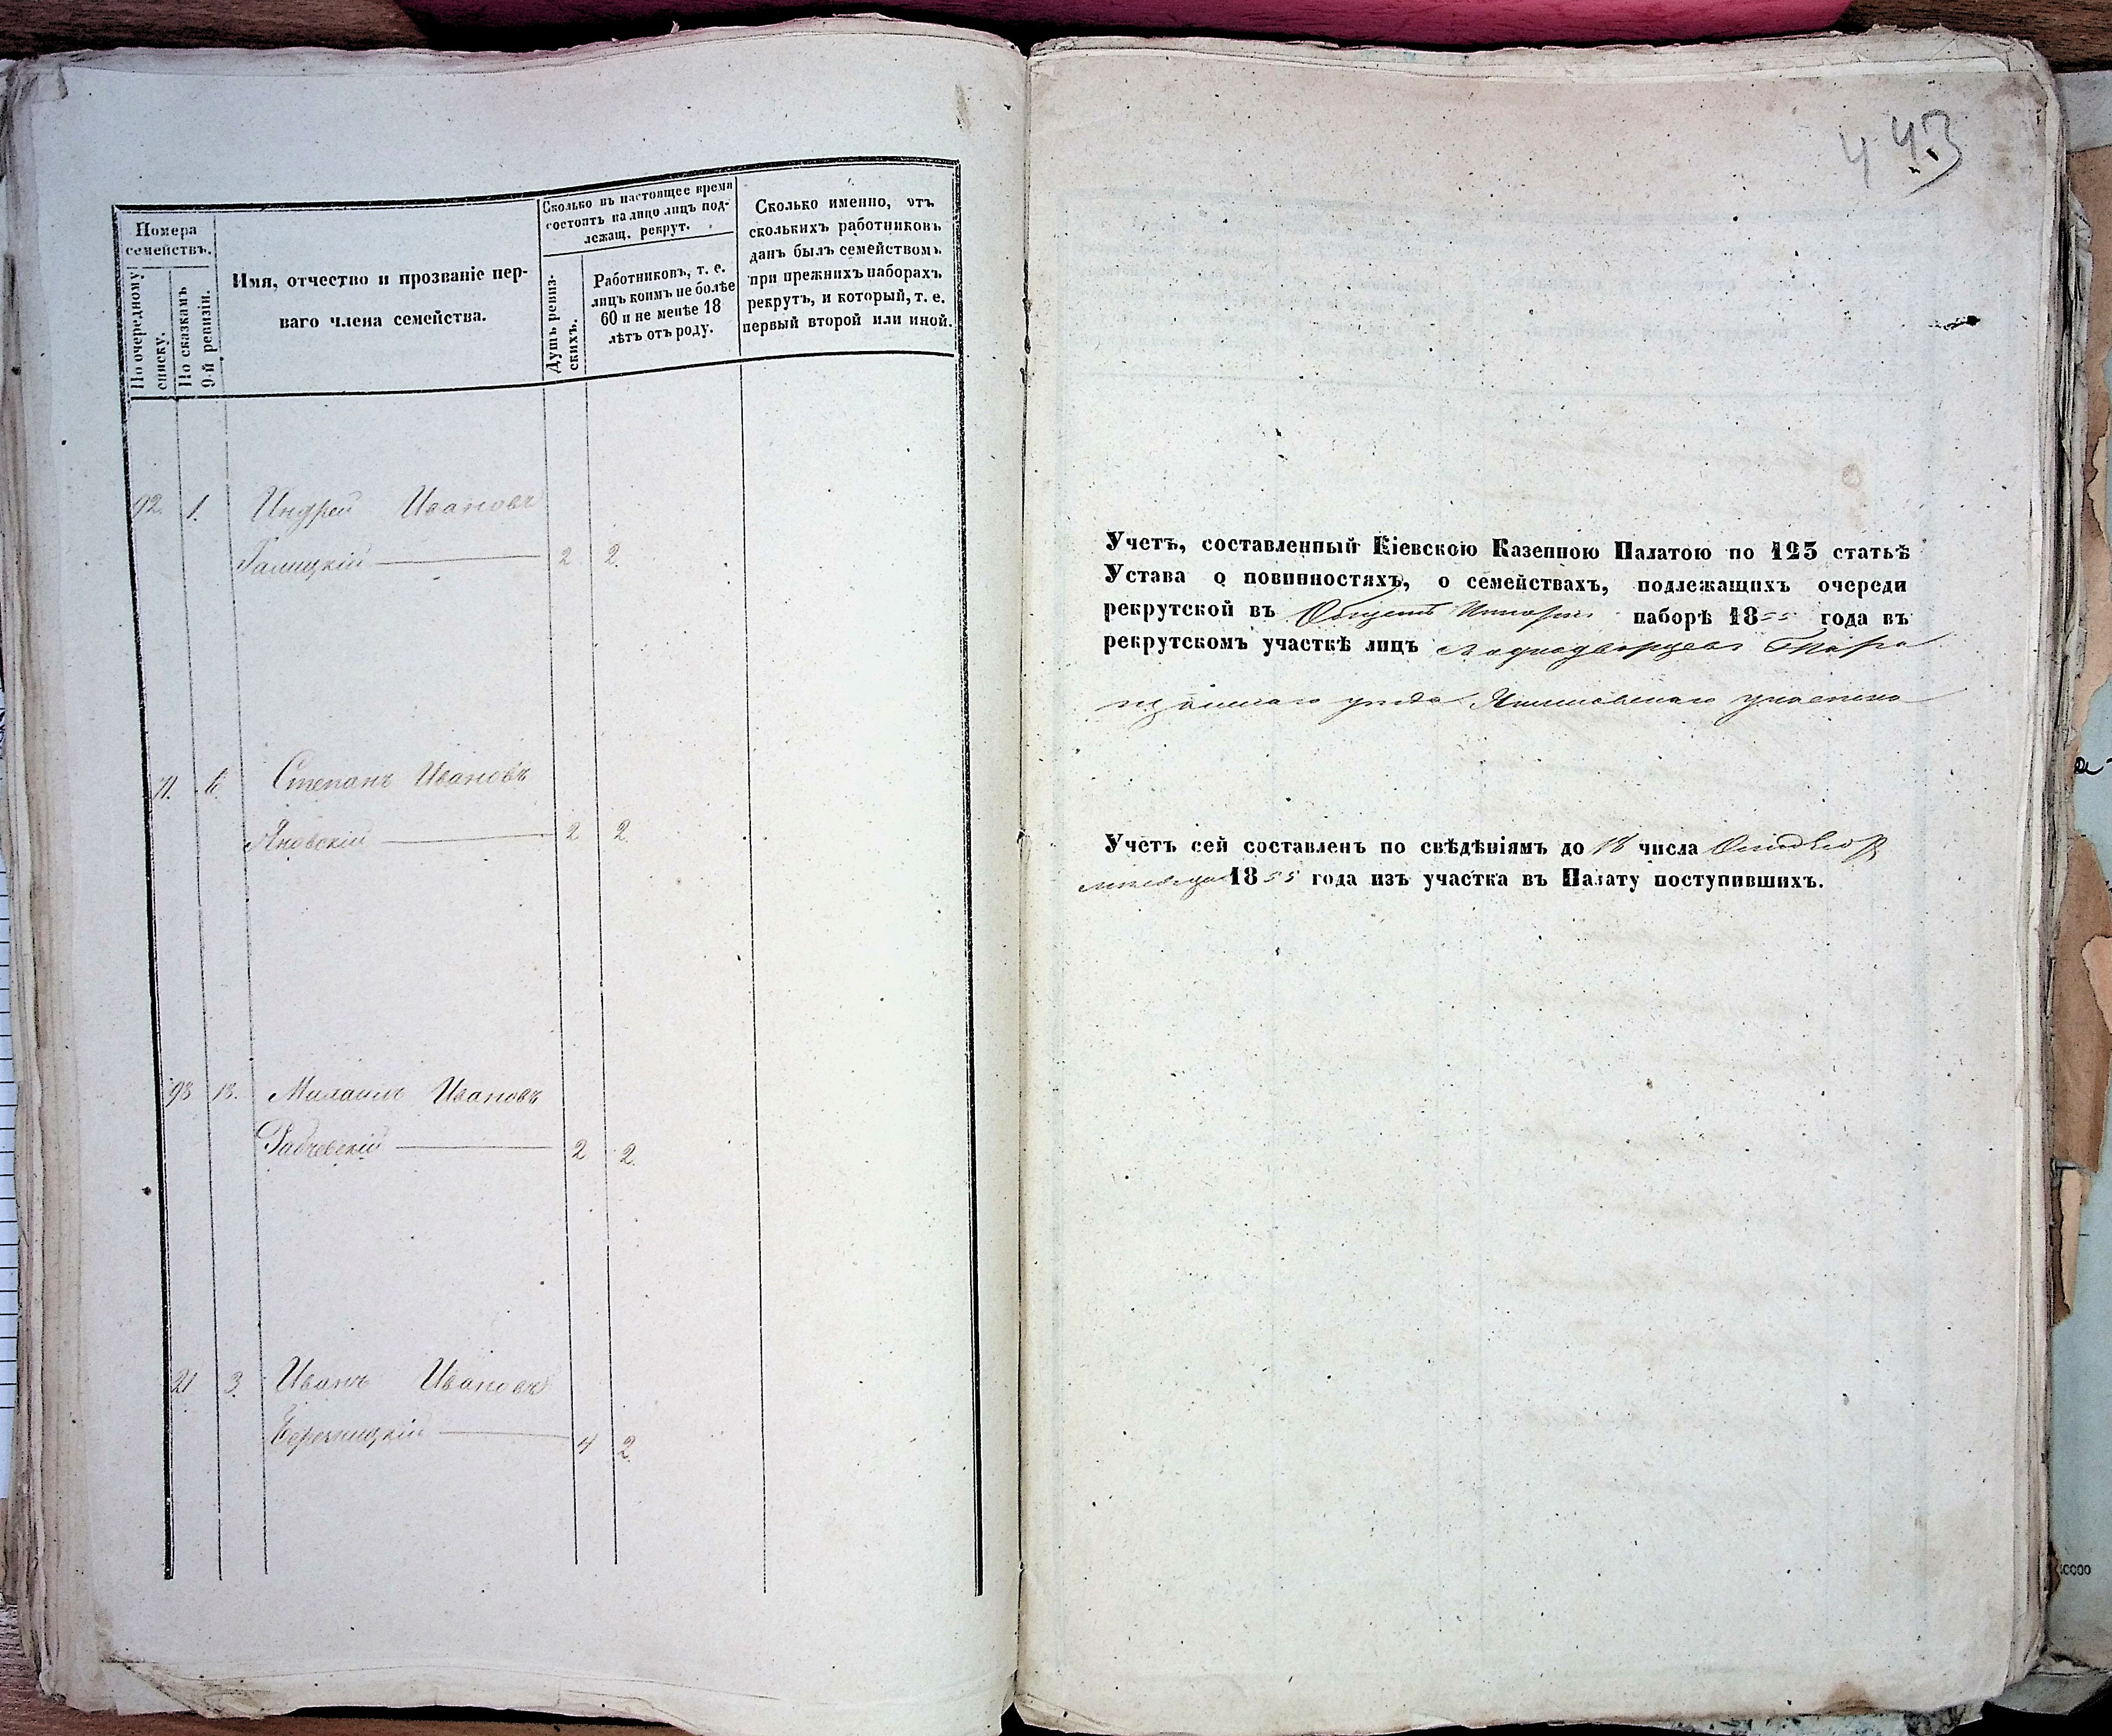 Номера
семействъ.
По очередному
списку.
По сказкамъ
9-й ревизіи.
Имя, отчество и прозваніе пер-
ваго члена семейства.
Сколько въ настоящее время
состоитъ на лицо лицъ под-
лежащ. рекрут.
Душъ ревиз-
скихъ.
Работниковъ, т. е.
лицъ коимъ не болѣе
60 и не менѣе 18
лѣтъ отъ роду.
Сколько именно, отъ
сколькихъ работниковъ
данъ былъ семействомъ
при прежнихъ наборахъ
рекрутъ, и который, т. е.
первый второй или иной.
92. 1. Андрей Ивановъ
Галицкій 2 2.
71. 6. Степанъ Ивановъ
Яновскій 2 2
93 13. Михаилъ Ивановъ
2 2.
21 3. Иванъ Ивановъ
4 2.
443
Учетъ, составленный Кіевскою Казенною Палатою по 125 статьѣ
Устава о повинностяхъ, о семействахъ, подлежащихъ очереди
рекрутской въ наборѣ 1855 года въ
рекрутскомъ участкѣ лицъ Однодворцевъ Тара
щанскаго уѣзда участка
Учетъ сей составленъ по свѣдѣніямъ до 18 числа Октября
мѣсяца 1855 года изъ участка въ Палату поступившихъ.